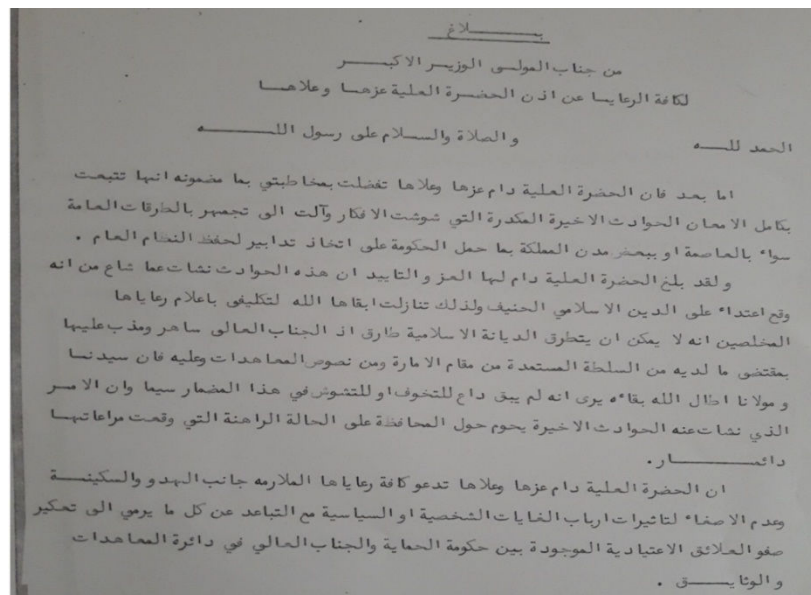 بـــــــلاغ
من جناب المولى الوزير الاكبـــــر
لكافة الرعايا عن اذن الحضـرة العلية عزهـا وعلاهـا
الحمد للـــه والصلاة والسـلام على رسول اللـــــه
اما بعد فان الحضرة العلية دام عزها وعلاها تفضلت بمخاطبتي بما مضمونه انها تتبعت
بكامل الامعان الحوادث الاخيرة المكدرة التي شوشت الافكار وآلت الى تجمهر بالطرقات العامة
سواء بالعاصمة او ببعض مدن المملكة بما حمل الحكومة على اتخاذ تدابير لحفظ النظام العام .
ولقد بلغ الحضرة العلية دام لها العز والتاييد ان هذه الحوادث نشات عما شاع من انه
وقع اعتداء على الدين الاسلامي الحنيف ولذلك تنازلت ابقاها الله لتكليفى باعلام رعاياها
المخلصين انه لا يمكن ان يتطرق الديانة الاسلامية طارق اذ الجناب العالى ساهر ومذب عليها
بمقتضى ما لديه من السلطة المستمدة من مقام الامارة ومن نصوص المعاهدات وعليه فان سيدنـا
ومولانا اطال الله بقاءه يرى انه لم يبق داع للتخوف او للتشوش في هذا المضمار سيما وان الامـر
الذي نشات عنه الحوادث الاخيرة يحوم حول المحافظة على الحالة الراهنة التي وقعت مراعاتهـا
دائمـــــــار .
ان الحضرة العلية دام عزها وعلاها تدعو كافة رعاياها الملارمه جانب الهدو والسكينـــة
وعدم الاصغاء لتاثيرات ارباب الغايات الشخصية او السياسية مع التباعد عن كل ما يرمي الى تعكير
صفو العلائق الاعتيادية الموجودة بين حكومة الحماية والجناب العالي في دائرة المعاهدات
والوثايـــق .